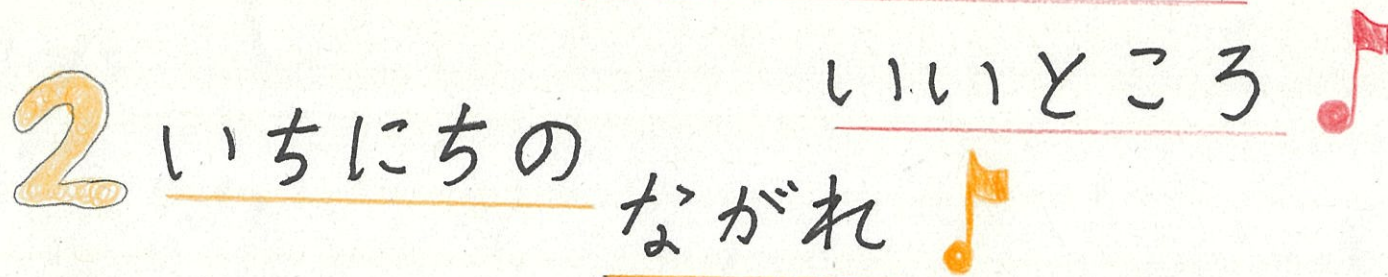 いいところ♪
2 いちにちの
ながれ♪